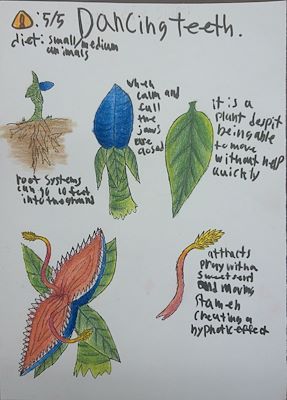 ! : 5/5 Dancing teeth.
diet: small/medium
animals
when
calm and
full
the
jaws
are
closed
it is a
plant despit
being able
to move
without help
quickly
root systems
can go 10 feet
into the ground
attracts
pray with a
sweet sent
and moving
stamen
creating a
hyphotic effect